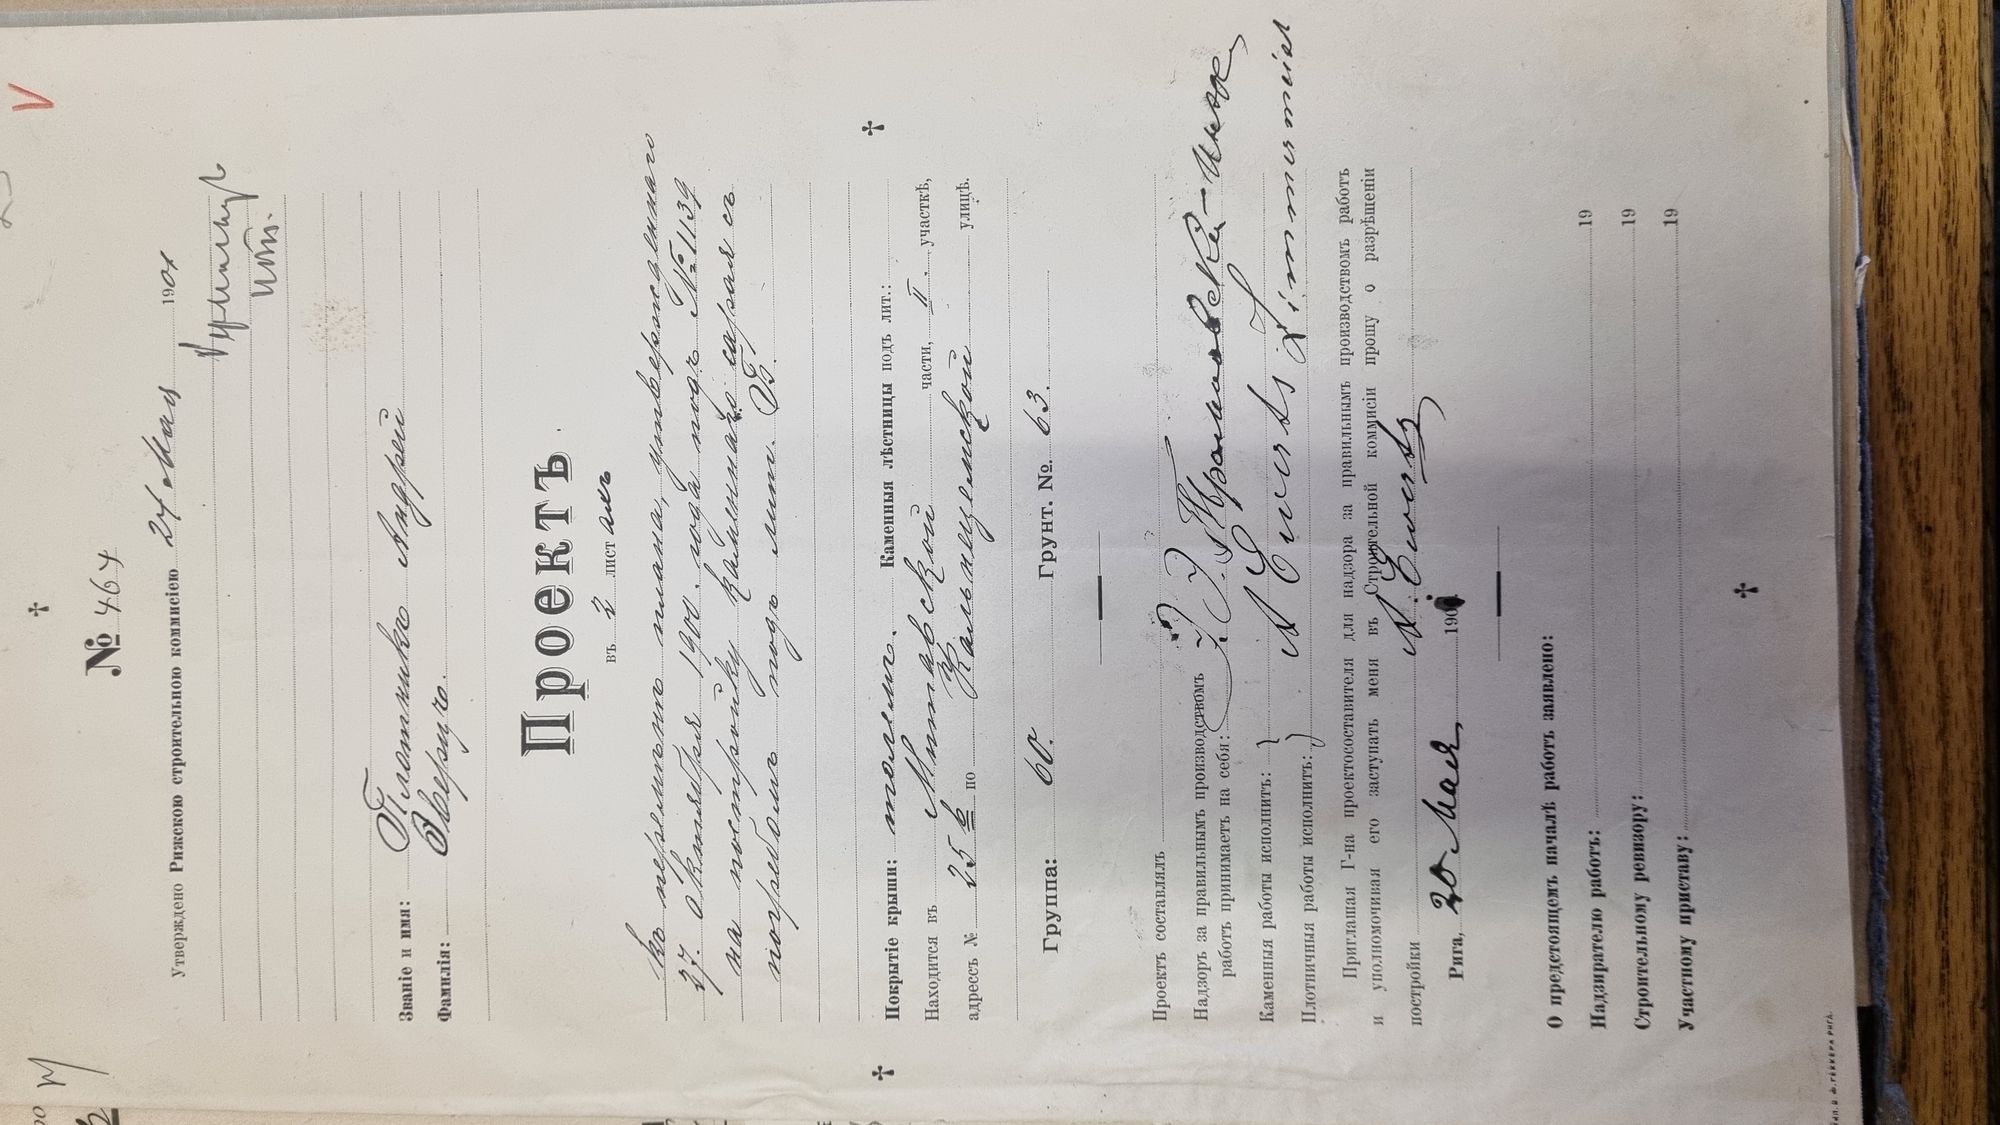 № 464
Утверждено Рижскою строительною коммисіею 24 Мая 1901
Званіе и имя: Плотникъ Андрей
Фамилія: Эвертъ.
Проектъ
въ 2 листахъ
къ перемѣнѣ плана, утвержденнаго
27. Октября 1900. года подъ №1139
на постройку сарая съ
погребомъ подъ лит. Б.
Покрытіе крыши: толемъ. Каменныя лѣстницы подъ лит.:
Находится въ Митавской части, II. участкѣ,
адресъ № 25 б по Кальнецемской улицѣ.
Группа: 60. Грунт. №. 63.
Проектъ составлялъ
Надзоръ за правильнымъ производствомъ
работъ принимаетъ на себя:
Каменныя работы исполнитъ: A Ewerts
Плотничныя работы исполнитъ:
Приглашая Г-на проектосоставителя для надзора за правильнымъ производствомъ работъ
и уполномочивая его заступать меня въ Строительной коммисіи прошу о разрѣшеніи
постройки A. Ewerts
Рига, 20 Мая 190
О предстоящемъ началѣ работъ заявлено:
Надзирателю работъ: 19
Строительному ревизору: 19
Участному приставу: 19